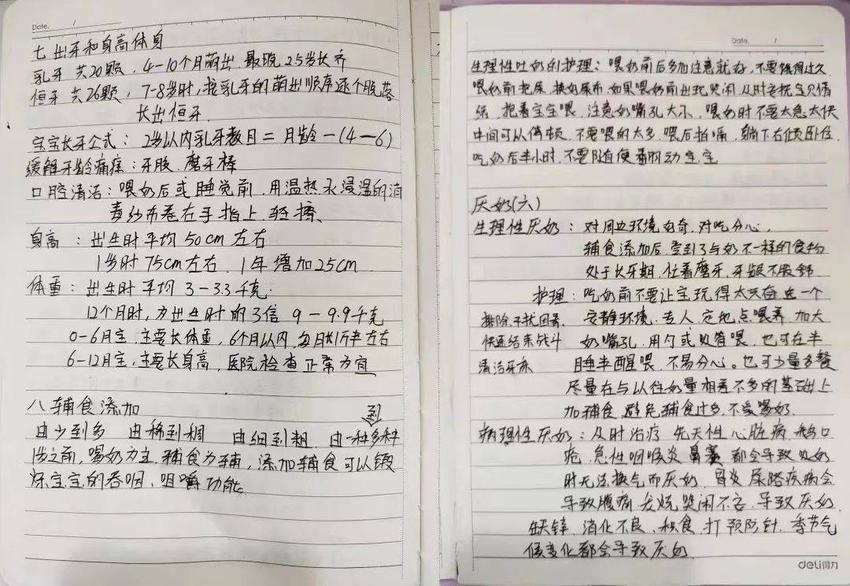 Date. /
七 出牙和身高体身
乳牙 共20颗，4-10个月萌出 最晚 2.5岁长齐
恒牙 共28颗，7-8岁时，按乳牙的萌出顺序逐个脱落
长出恒牙
宝宝长牙公式：2岁以内乳牙数目＝月龄－(4－6)
缓解牙龄痛痒：牙胶、磨牙棒
口腔清洁：喂奶后或睡觉前，用温热水浸湿的消
毒纱布卷在手指上 轻擦
身高：出生时平均50cm左右
1岁时75cm左右 1年增加25cm
体重：出生时平均3－3.3千克
12个月时，为出生时的3倍 9－9.9千克
0-6月主，主要长体重，6个月以内，每月 左右
6-12月主，主要长身高，医院检查正常方宜
八 辅食添加
到
由少到多 由稀到稠 由细到粗 由一种多种
1岁之前，喝奶为主 辅食为辅，添加辅食可以锻
炼宝宝的吞咽，咀嚼功能
Date. /
生理性吐奶的护理：喂奶前后多加注意就好，不要饿得过久
喂奶前把尿 换好尿布 如果喂奶前出现哭闹 及时安抚宝贝情
绪 抱着宝宝喂 注意奶嘴孔大小 喂奶时不要太急太快
中间可以停顿 不要喂的太多 喂后拍嗝 躺下右侧卧位
吃奶后半小时 不要随便翻动宝宝
厌奶(六)
生理性厌奶：对周边环境好奇 对吃分心
辅食添加后 尝到了与奶不一样的食物
处于长牙期 牙龈不舒
护理：吃奶前不要让宝玩得太兴奋 一个
排除干扰因素 安静环境 专人 定地点喂养 加大
快速结束战斗 奶嘴孔 用勺或 喂 也可在半
清洁牙床 睡半醒喂 不易分心。也可少量多餐
尽量在与以往奶量相差不多的基础上
加辅食 避免辅食过多 不爱喝奶
病理性厌奶：及时治疗 先天性心脏病 鹅口
疮 急性咽喉炎 鼻塞 都会导致吃奶
时无法换气而厌奶 胃炎 尿路疾病会
导致腹痛 发烧 哭闹不安 导致厌奶
缺锌 消化不良 积食 打预防针 季节气
候变化都会导致厌奶
deli得力